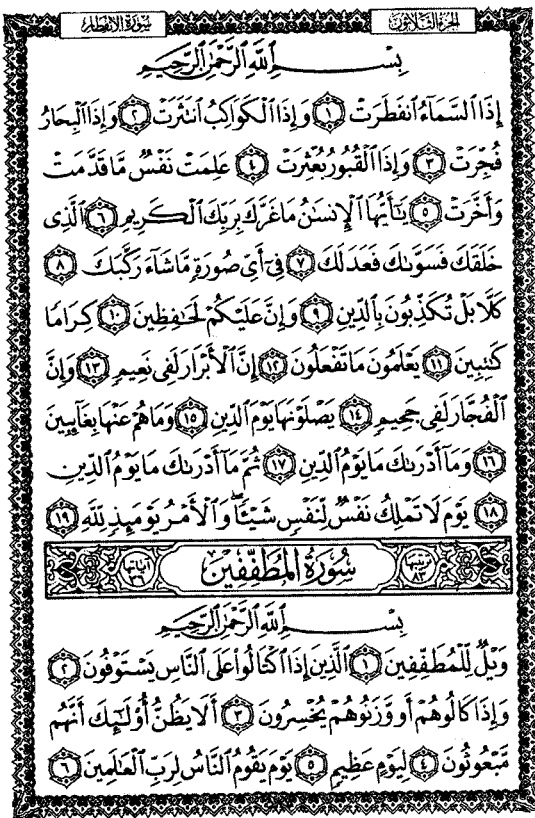 الجزء الثلاثون
سورة الانفطار
بِسْمِ اللَّهِ الرَّحْمَٰنِ الرَّحِيمِ
إِذَا ٱلسَّمَآءُ ٱنفَطَرَتْ ۝١ وَإِذَا ٱلْكَوَاكِبُ ٱنتَثَرَتْ ۝٢ وَإِذَا ٱلْبِحَارُ
فُجِّرَتْ ۝٣ وَإِذَا ٱلْقُبُورُ بُعْثِرَتْ ۝٤ عَلِمَتْ نَفْسٌ مَّا قَدَّمَتْ
وَأَخَّرَتْ ۝٥ يَٰٓأَيُّهَا ٱلْإِنسَٰنُ مَا غَرَّكَ بِرَبِّكَ ٱلْكَرِيمِ ۝٦ ٱلَّذِى
خَلَقَكَ فَسَوَّىٰكَ فَعَدَلَكَ ۝٧ فِىٓ أَىِّ صُورَةٍ مَّا شَآءَ رَكَّبَكَ ۝٨
كَلَّا بَلْ تُكَذِّبُونَ بِٱلدِّينِ ۝٩ وَإِنَّ عَلَيْكُمْ لَحَٰفِظِينَ ۝١٠ كِرَامًا
كَٰتِبِينَ ۝١١ يَعْلَمُونَ مَا تَفْعَلُونَ ۝١٢ إِنَّ ٱلْأَبْرَارَ لَفِى نَعِيمٍ ۝١٣ وَإِنَّ
ٱلْفُجَّارَ لَفِى جَحِيمٍ ۝١٤ يَصْلَوْنَهَا يَوْمَ ٱلدِّينِ ۝١٥ وَمَا هُمْ عَنْهَا بِغَآئِبِينَ
۝١٦ وَمَآ أَدْرَىٰكَ مَا يَوْمُ ٱلدِّينِ ۝١٧ ثُمَّ مَآ أَدْرَىٰكَ مَا يَوْمُ ٱلدِّينِ
۝١٨ يَوْمَ لَا تَمْلِكُ نَفْسٌ لِّنَفْسٍ شَيْـًٔا ۖ وَٱلْأَمْرُ يَوْمَئِذٍ لِّلَّهِ ۝١٩
ترتيبها ٨٣ سُورَةُ المُطَفِّفِينَ آياتها ٣٦
بِسْمِ اللَّهِ الرَّحْمَٰنِ الرَّحِيمِ
وَيْلٌ لِّلْمُطَفِّفِينَ ۝١ ٱلَّذِينَ إِذَا ٱكْتَالُوا۟ عَلَى ٱلنَّاسِ يَسْتَوْفُونَ ۝٢
وَإِذَا كَالُوهُمْ أَو وَّزَنُوهُمْ يُخْسِرُونَ ۝٣ أَلَا يَظُنُّ أُو۟لَٰٓئِكَ أَنَّهُم
مَّبْعُوثُونَ ۝٤ لِيَوْمٍ عَظِيمٍ ۝٥ يَوْمَ يَقُومُ ٱلنَّاسُ لِرَبِّ ٱلْعَٰلَمِينَ ۝٦